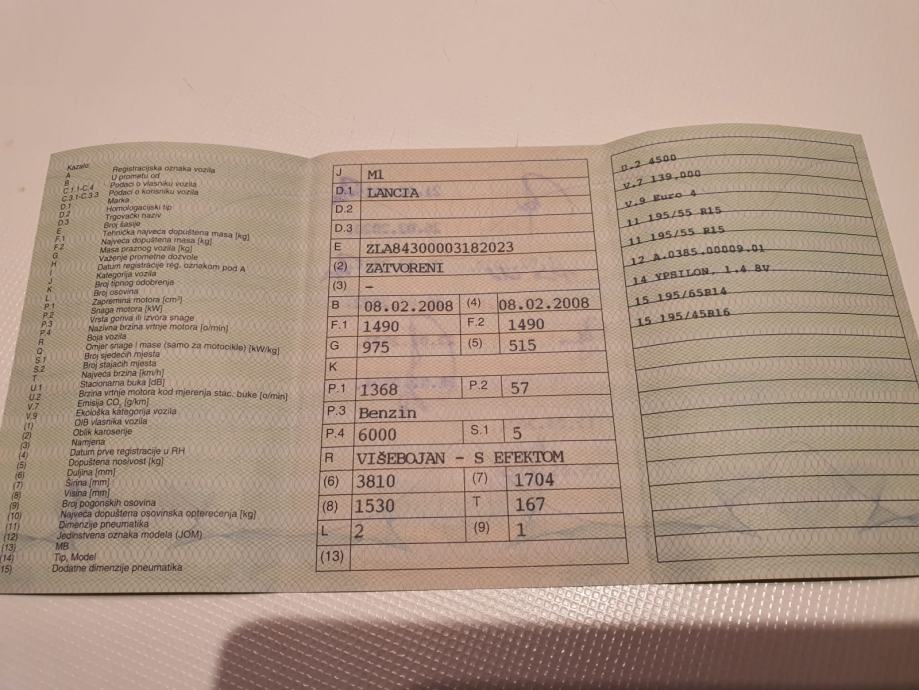 Kazalo:
A Registracijska oznaka vozila
B U prometu od
C.1.1-C.4 Podaci o vlasniku vozila
C.3.1-C.3.3 Podaci o korisniku vozila
D.1 Marka
D.2 Homologacijski tip
D.3 Trgovački naziv
E Broj šasije
F.1 Tehnička najveća dopuštena masa [kg]
F.2 Najveća dopuštena masa [kg]
G Masa praznog vozila [kg]
H Važenje prometne dozvole
I Datum registracije reg. oznakom pod A
J Kategorija vozila
K Broj tipnog odobrenja
L Broj osovina
P.1 Zapremina motora [cm³]
P.2 Snaga motora [kW]
P.3 Vrsta goriva ili izvora snage
P.4 Nazivna brzina vrtnje motora [o/min]
R Boja vozila
Q Omjer snage i mase (samo za motocikle) [kW/kg]
S.1 Broj sjedećih mjesta
S.2 Broj stajaćih mjesta
T Najveća brzina [km/h]
U.1 Stacionarna buka [dB]
U.2 Brzina vrtnje motora kod mjerenja stac. buke [o/min]
V.7 Emisija CO₂ [g/km]
V.9 Ekološka kategorija vozila
(1) OIB vlasnika vozila
(2) Oblik karoserije
(3) Namjena
(4) Datum prve registracije u RH
(5) Dopuštena nosivost [kg]
(6) Duljina [mm]
(7) Širina [mm]
(8) Visina [mm]
(9) Broj pogonskih osovina
(10) Najveća dopuštena osovinska opterećenja [kg]
(11) Dimenzije pneumatika
(12) Jedinstvena oznaka modela (JOM)
(13) MB
(14) Tip, Model
15) Dodatne dimenzije pneumatika
J M1
D.1 LANCIA
D.2
D.3
E ZLA84300003182023
(2) ZATVORENI
(3) -
B 08.02.2008 (4) 08.02.2008
F.1 1490 F.2 1490
G 975 (5) 515
K
P.1 1368 P.2 57
P.3 Benzin
P.4 6000 S.1 5
R VIŠEBOJAN - S EFEKTOM
(6) 3810 (7) 1704
(8) 1530 T 167
L 2 (9) 1
(13)
U.2 4500
V.7 139,000
V.9 Euro 4
11 195/55 R15
11 195/55 R15
12 A.0385.00009.01
14 YPSILON, 1.4 8V
15 195/65R14
15 195/45R16